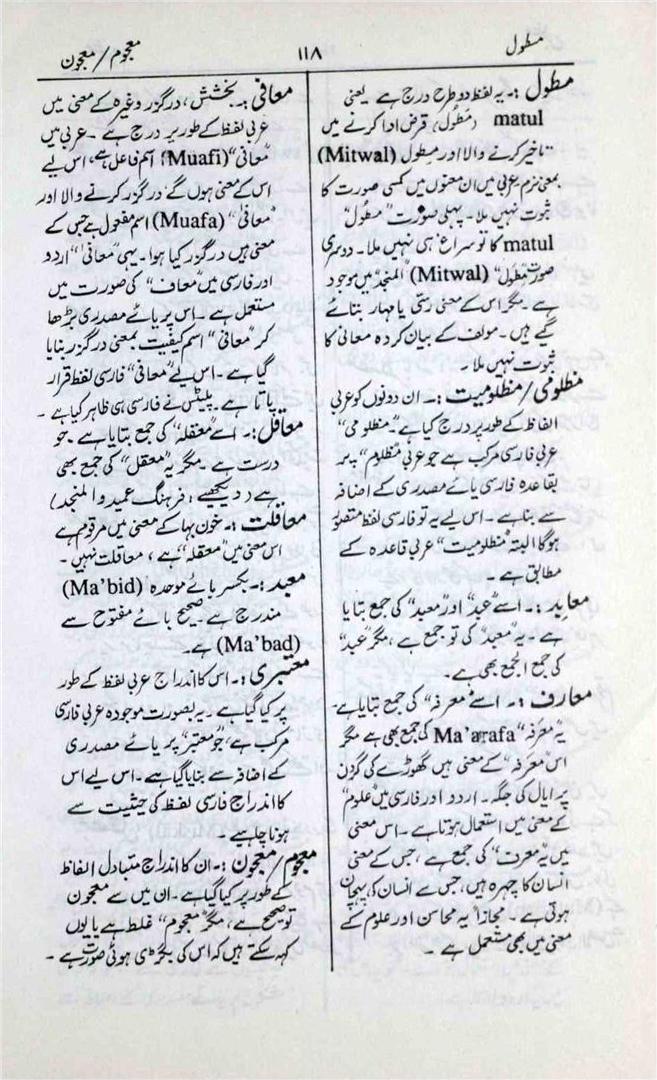 مطول
۱۱۸
معجوم/معجون
مطول :۔ یہ لفظ دو طرح درج ہے ۔ یعنی
matul (مَطُول) قرض ادا کرنے میں
تاخیر کرنے والا اور مِطول (Mitwal)
بمعنی نرم عربی میں ان معنوں میں کسی صورت کا
ثبوت نہیں ملا۔ پہلی صورت "مَطُول"
matul کا تو سراغ ہی نہیں ملا۔ دوسری
صورت "مِطوَل" (Mitwal) "المنجد" میں موجود
ہے ۔ مگر اس کے معنی رسّی یا مہار بتائے
گیے ہیں۔ مولف کے بیان کردہ معانی کا
ثبوت نہیں ملا۔
مظلومی/مظلومیت :۔ ان دونوں کو عربی
الفاظ کے طور پر درج کیا ہے "مظلومی"
عربی فارسی مرکب ہے جو عربی "مظلوم" پر
بقاعدہ فارسی یائے مصدری کے اضافہ
سے بنا ہے ۔ اس لیے یہ تو فارسی لفظ متصور
ہوگا البتہ "مظلومیت" عربی قاعدہ کے
مطابق ہے ۔
معابد :۔ اسے "عبد" اور "معبد" کی جمع بتایا
ہے ۔ یہ "معبد" کی تو جمع ہے ، مگر "عبد"
کی جمع الجمع بھی ہے ۔
معارف :۔ اسے "معرفہ" کی جمع بتایا ہے ۔
یہ "معرَفہ" Ma'arafa کی جمع بھی ہے مگر
اس "معرفہ" کے معنی ہیں گھوڑے کی گردن
پر ایال کی جگہ ۔ اردو اور فارسی میں "علوم"
کے معنی میں استعمال ہوتا ہے ۔ اس معنی
میں یہ "معرف" کی جمع ہے ، جس کے معنی
انسان کا چہرہ ہیں، جس سے انسان کی پہچان
ہوتی ہے ۔ مجازاً یہ محاسن اور علوم کے
معنی میں بھی مشتمل ہے ۔
معافی :۔ بخشش ، درگزر وغیرہ کے معنی میں
عربی لفظ کے طور پر درج ہے ۔ عربی میں
"معافی" (Muafi) اسم فاعل ہے، اس لیے
اس کے معنی ہوں گے درگزر کرنے والا اور
"معافیٰ" (Muafa) اسم مفعول ہے جس کے
معنی ہیں درگزر کیا ہوا۔ یہی "معافیٰ" اردو
اور فارسی میں "معاف" کی صورت میں
مستعمل ہے ۔ اس پر یائے مصدری بڑھا
کر "معافی" اسم کیفیت بمعنی درگزر بنایا
گیا ہے ۔ اس لیے "معافی" فارسی لفظ قرار
پاتا ہے ۔ پلیٹس نے فارسی ہی ظاہر کیا ہے ۔
معاقل :۔ اسے "معقلہ" کی جمع بتایا ہے ۔ جو
درست ہے ۔ مگر یہ "معقل" کی جمع بھی
ہے (دیکھیے : فرہنگ عمید و المنجد)
معاقلت :۔ خون بہا کے معنی میں مرقوم ہے
اس معنی میں "معقلہ" ہے ، معاقلت نہیں ۔
معبد :۔ بکسر بائے موحدہ (Ma'bid)
مندرج ہے ۔ صحیح بائے مفتوح سے
(Ma'bad) ہے ۔
معتبری :۔ اس کا اندراج عربی لفظ کے طور
پر کیا گیا ہے ۔ یہ بصورت موجودہ عربی فارسی
مرکب ہے ، جو "معتبر" پر یائے مصدری
کے اضافہ سے بنایا گیا ہے ۔ اس لیے اس
کا اندراج فارسی لفظ کی حیثیت سے
ہونا چاہیے ۔
معجوم/معجون :۔ ان کا اندراج متبادل الفاظ
کے طور پر کیا گیا ہے ۔ ان میں سے معجون
تو صحیح ہے ، مگر "معجوم" غلط ہے یا یوں
کہہ سکتے ہیں کہ اس کی بگڑی ہوئی صورت ہے ۔